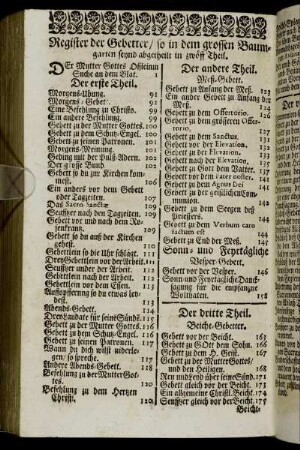 Register der Gebetter / so in dem grossen Baum-
garten seynd abgetheilt in zwölff Theil.
Der Mutter Gottes Officium
Suche an dem Blat.
Der erste Theil.
Morgens-Ubung. 91
Morgens-Gebet. 91
Eine Befehlung zu Christo. 91
Ein andere Befehlung. 91
Gebett zu der Mutter Gottes. 100
Gebett zu dem Schutz-Engel.
Gebett zu seinen Patronen.
Morgens-Meinung.
Geding mit der Pulß-Adern.
Der guldene Bund.
Gebett so du zur Kirchen
kommest.
Ein anders vor dem Gebett
oder Tagzeiten. 107
Das Sacro Sanctæ
Seuffzer nach den Tagzeiten. 109
Gebett vor und nach dem Ro-
senkrantz. 109
Gebett so du auß der Kirchen
gehest.
Gebettlein so die Uhr schlägt.
Drey Gebettlein vor der Arbeit.
Seuffzer under der Arbeit.
Gebettlein nach der Arbeit.
Gebettlein vor dem Essen.
Auffopfferung so du etwas ley-
dest. 113
Abends-Gebett. 114
Drey Laudate für seine Sünd. 115
Gebett zu der Mutter Gottes. 116
Gebett zu dem Schutz-Engel. 116
Gebett zu seinen Patronen. 117
Wann du dich wilst niderle-
gen / so spreche. 117
Andere Abends-Gebett. 118
Befehlung zu der Mutter Got-
tes. 120
Befehlung zu dem Hertzen
Christi. 120
Der andere Theil.
Meß-Gebett.
Gebett zu Anfang der Meß. 123
Ein ander Gebett zu Anfang der
Meß. 124
Gebett zu dem Offertorio.
Gebett zu dem grösseren Offer-
torio.
Gebett zu dem Sanctus. 131
Gebett vor der Elevation.
Gebett nach der Elevation.
Gebett zu Gott dem Vatter.
Gebett vor dem Pater noster.
Gebett zu dem Agnus Dei
Gebett zu der geistlichen Com-
munion.
Gebett zu dem Seegen deß
Priesters.
Gebett zu dem Verbum caro
factum est
Gebett zu End der Meß. 145
Sonn- und Feyrtägliche
Vesper-Gebett.
Gebett vor der Vesper. 146
Sonn- und Feyrtägliche Danck-
sagung für die empfangne
Wolthaten. 158
Der dritte Theil.
Beicht-Gebetter.
Gebett vor der Beicht. 163
Gebett zu GOtt dem Sohn. 166
Gebett zu dem H. Geist. 167
Gebett zu der Mutter Gottes /
und den Heiligen. 168
Reu und Leyd über seine Sünd. 171
Gebett gleich vor der Beicht. 174
Ein allgemeine Christl. Beicht. 174
Seuffzer gleich vor der Beicht. 175
Beicht-